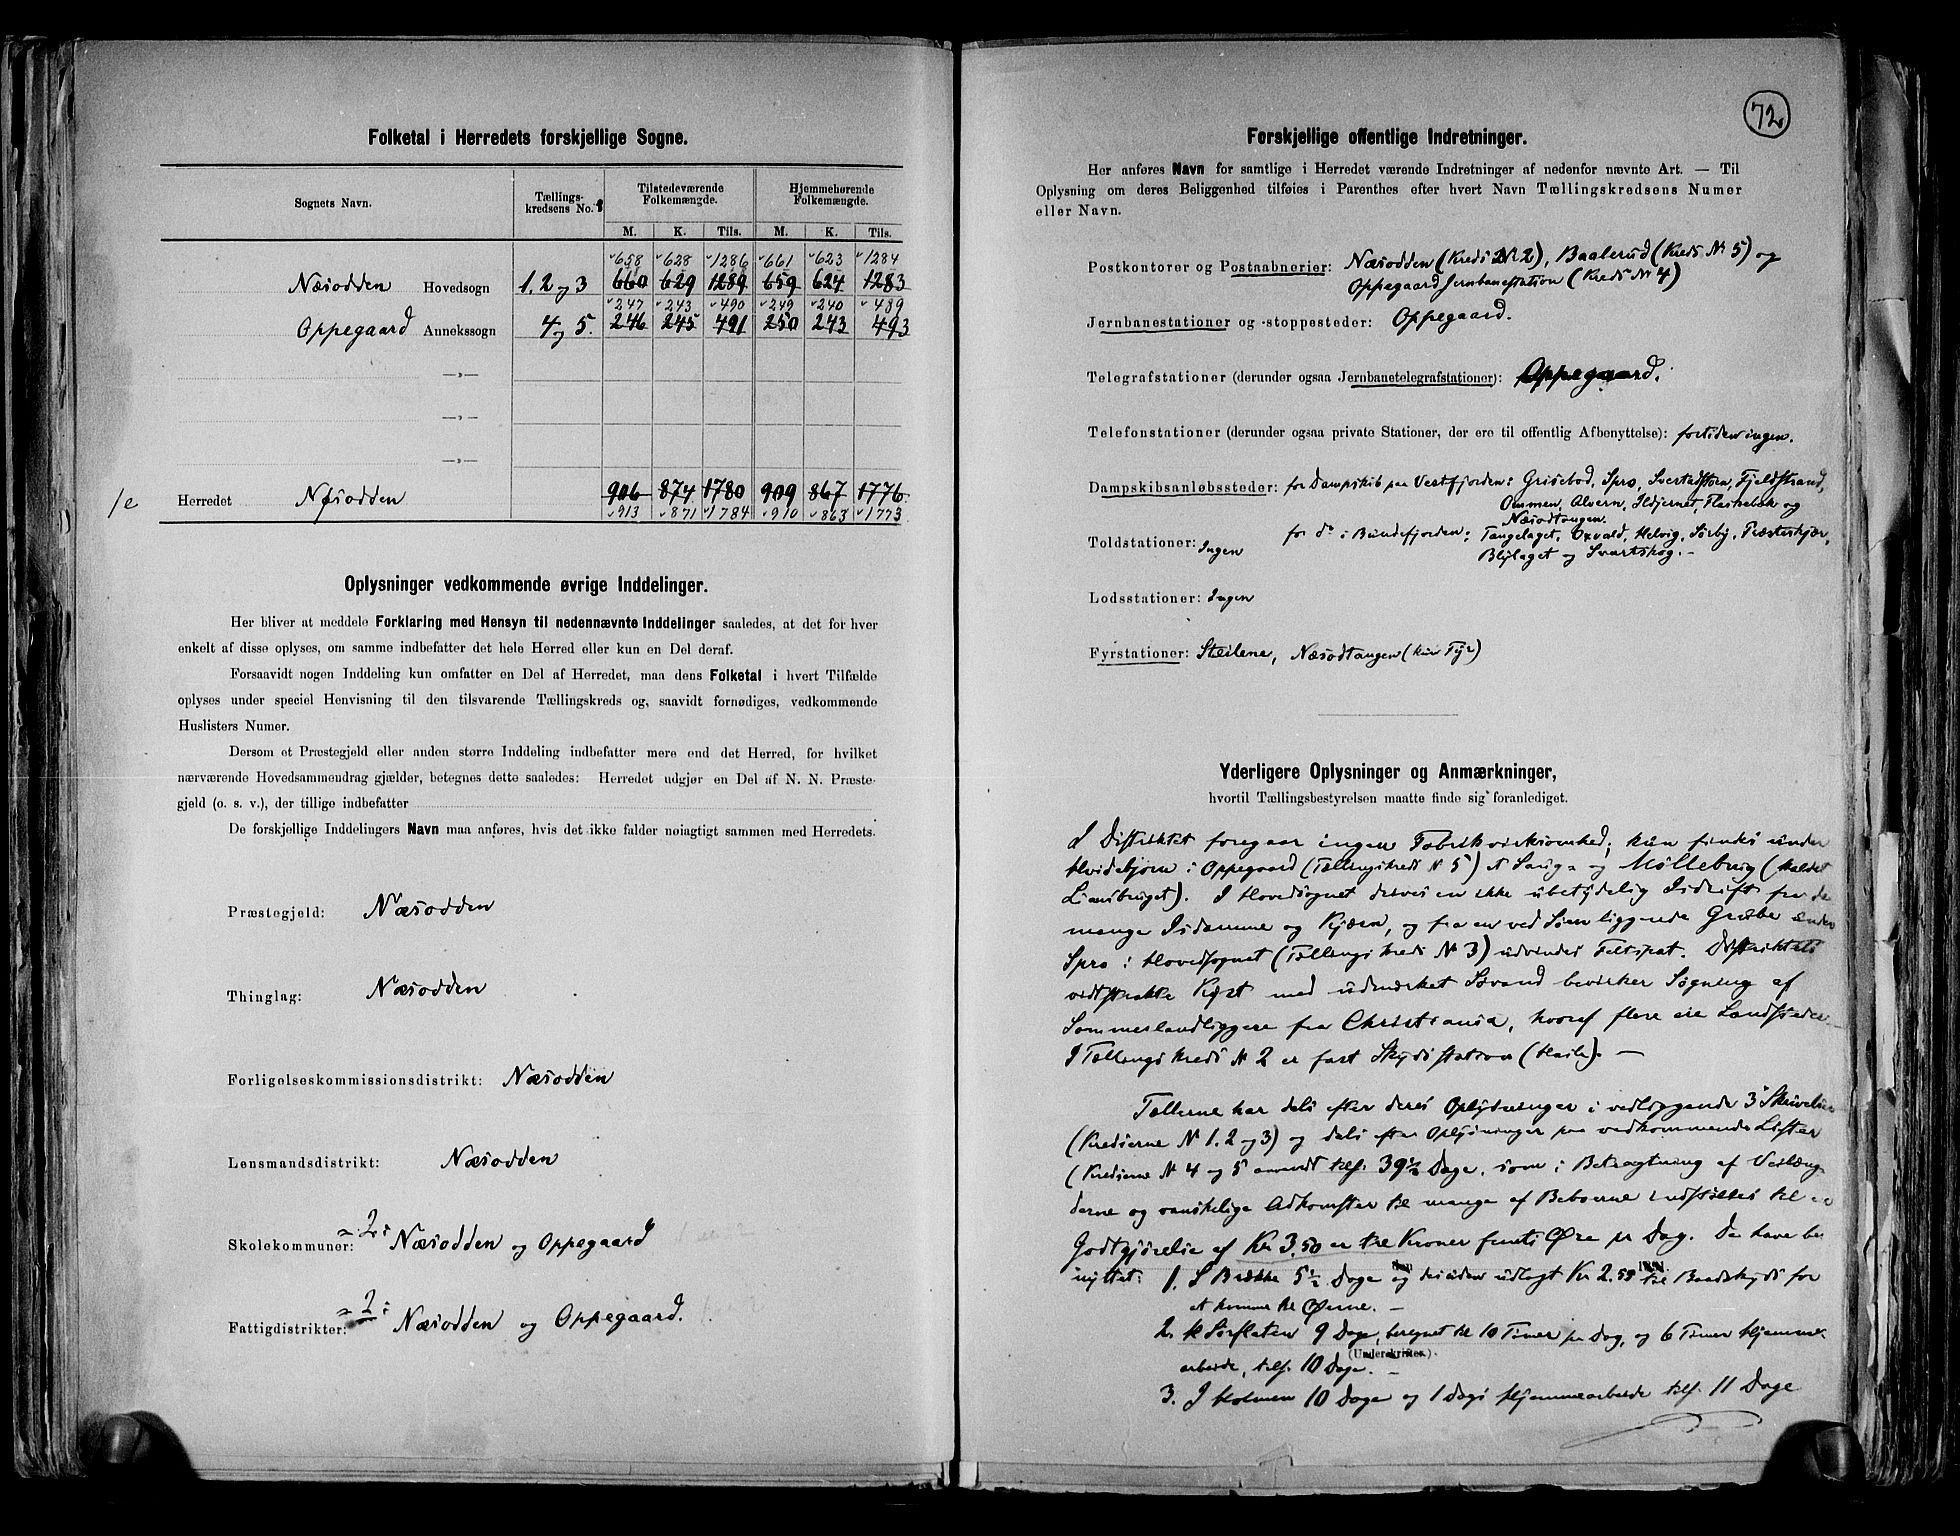 Folketal i Herredets forskjellige Sogne.
Sognets Navn.
Tællings-
kredsens No.
Tilstedeværende
Folkemængde.
Hjemmehørende
Folkemængde.
M. K. Tils. M. K. Tils.
658 628 1286 661 623 1284
Næsodden Hovedsogn 1. 2 og 3 660 629 1289 659 624 1283
247 243 490 249 240 489
Oppegaard Annekssogn 4 og 5. 246 245 491 250 243 493
— „ —
— „ —
— „ —
1e Herredet Næsodden 906 874 1780 909 867 1776.
913 871 1784 910 863 1773
Oplysninger vedkommende øvrige Inddelinger.
Her bliver at meddele Forklaring med Hensyn til nedennævnte Inddelinger saaledes, at det for hver
enkelt af disse oplyses, om samme indbefatter det hele Herred eller kun en Del deraf.
Forsaavidt nogen Inddeling kun omfatter en Del af Herredet, maa dens Folketal i hvert Tilfælde
oplyses under speciel Henvisning til den tilsvarende Tællingskreds og, saavidt fornødiges, vedkommende
Huslisters Numer.
Dersom et Præstegjeld eller anden større Inddeling indbefatter mere end det Herred, for hvilket
nærværende Hovedsammendrag gjælder, betegnes dette saaledes: Herredet udgjør en Del af N. N. Præste-
gjeld (o. s. v.), der tillige indbefatter
De forskjellige Inddelingers Navn maa anføres, hvis det ikke falder nøiagtigt sammen med Herredets.
Præstegjeld: Næsodden
Thinglag: Næsodden
Forligelseskommissionsdistrikt: Næsodden
Lensmandsdistrikt: Næsodden
Skolekommuner: = 2: Næsodden og Oppegaard
Fattigdistrikter: = 2: Næsodden og Oppegaard.
72
Forskjellige offentlige Indretninger.
Her anføres Navn for samtlige i Herredet værende Indretninger af nedenfor nævnte Art. — Til
Oplysning om deres Beliggenhed tilføies i Parenthes efter hvert Navn Tællingskredsens Numer
eller Navn.
Postkontorer og Postaabnerier: Næsodden (Kreds № 2), Baalerud (Kreds № 5) og
Oppegaard Jernbanestation (Kreds № 4)
Jernbanestationer og -stoppesteder: Oppegaard.
Telegrafstationer (derunder ogsaa Jernbanetelegrafstationer): Oppegaard.
Telefonstationer (derunder ogsaa private Stationer, der ere til offentlig Afbenyttelse): for tiden ingen.
Dampskibsanløbssteder: for Dampskib paa Vestfjorden: Grisebod, Spro, Svertadstrn, Fjeldstrand,
Ommen, Alvern, Ildjernet, Flaskebæk og
Næsodtangen.
for do i Bundefjorden: Tangelaget, Oxvald, Helvig, Sørby, Præsteskjær,
Blylaget og Svartskog. –
Toldstationer: Ingen
Lodsstationer: Ingen
Fyrstationer: Steilene, Næsodtangen (kun Fyr)
Yderligere Oplysninger og Anmærkninger,
hvortil Tællingsbestyrelsen maatte finde sig foranlediget.
I Distriktet foregaar ingen Fabrikvirksomhed; kun findes under
Hvidebjørn i Oppegaard (Tællingskreds № 5) et Saug- og Møllebrug (kaldet
Liansbruget). I Hovedsognet drives en ikke ubetydelig Isdrift fra de
mange Isdamme og Kjærn, og fra en ved Søen liggende Grube under
Spro i Hovedsognet (Tællingskreds № 3) udvindes Feltspat. Distriktets
vidtstrakte Kyst med udmærket Søvand bevirker Søgning af
Sommerlandliggere fra Christiania, hvoraf flere eie Landsteder.
I Tællingskreds № 2 er fast Skydsstation (Hasle). —
Tællerne har dels efter deres Oplysninger i vedliggende 3 Skrivelser
(Kredserne № 1. 2 og 3) og dels efter Oplysninger paa vedkommende Lister
(Kredserne № 4 og 5 anvendt tils. 39½ Dage, som i Betragtning af Veilæng-
derne og vanskelige Adkomster til mange af Beboerne indstilles til en
Godtgjørelse af Kr 3.50 er tre Kroner femti Øre pr Dag. De have be-
nyttet: 1. S Brække 5½ Dage og desuden udlagt Kr 2.59 til Baadskyds for
at komme til Øerne. –
2. K Sørflaten 9 Dage, beregnet til 10 Timer pr Dag, og 6 Timer Hjemme-
(Underskrifter.)
arbeide, tils. 10 Dage. –
3. J Holmen 10 Dage og 1 Dags Hjemmearbeide tils. 11 Dage